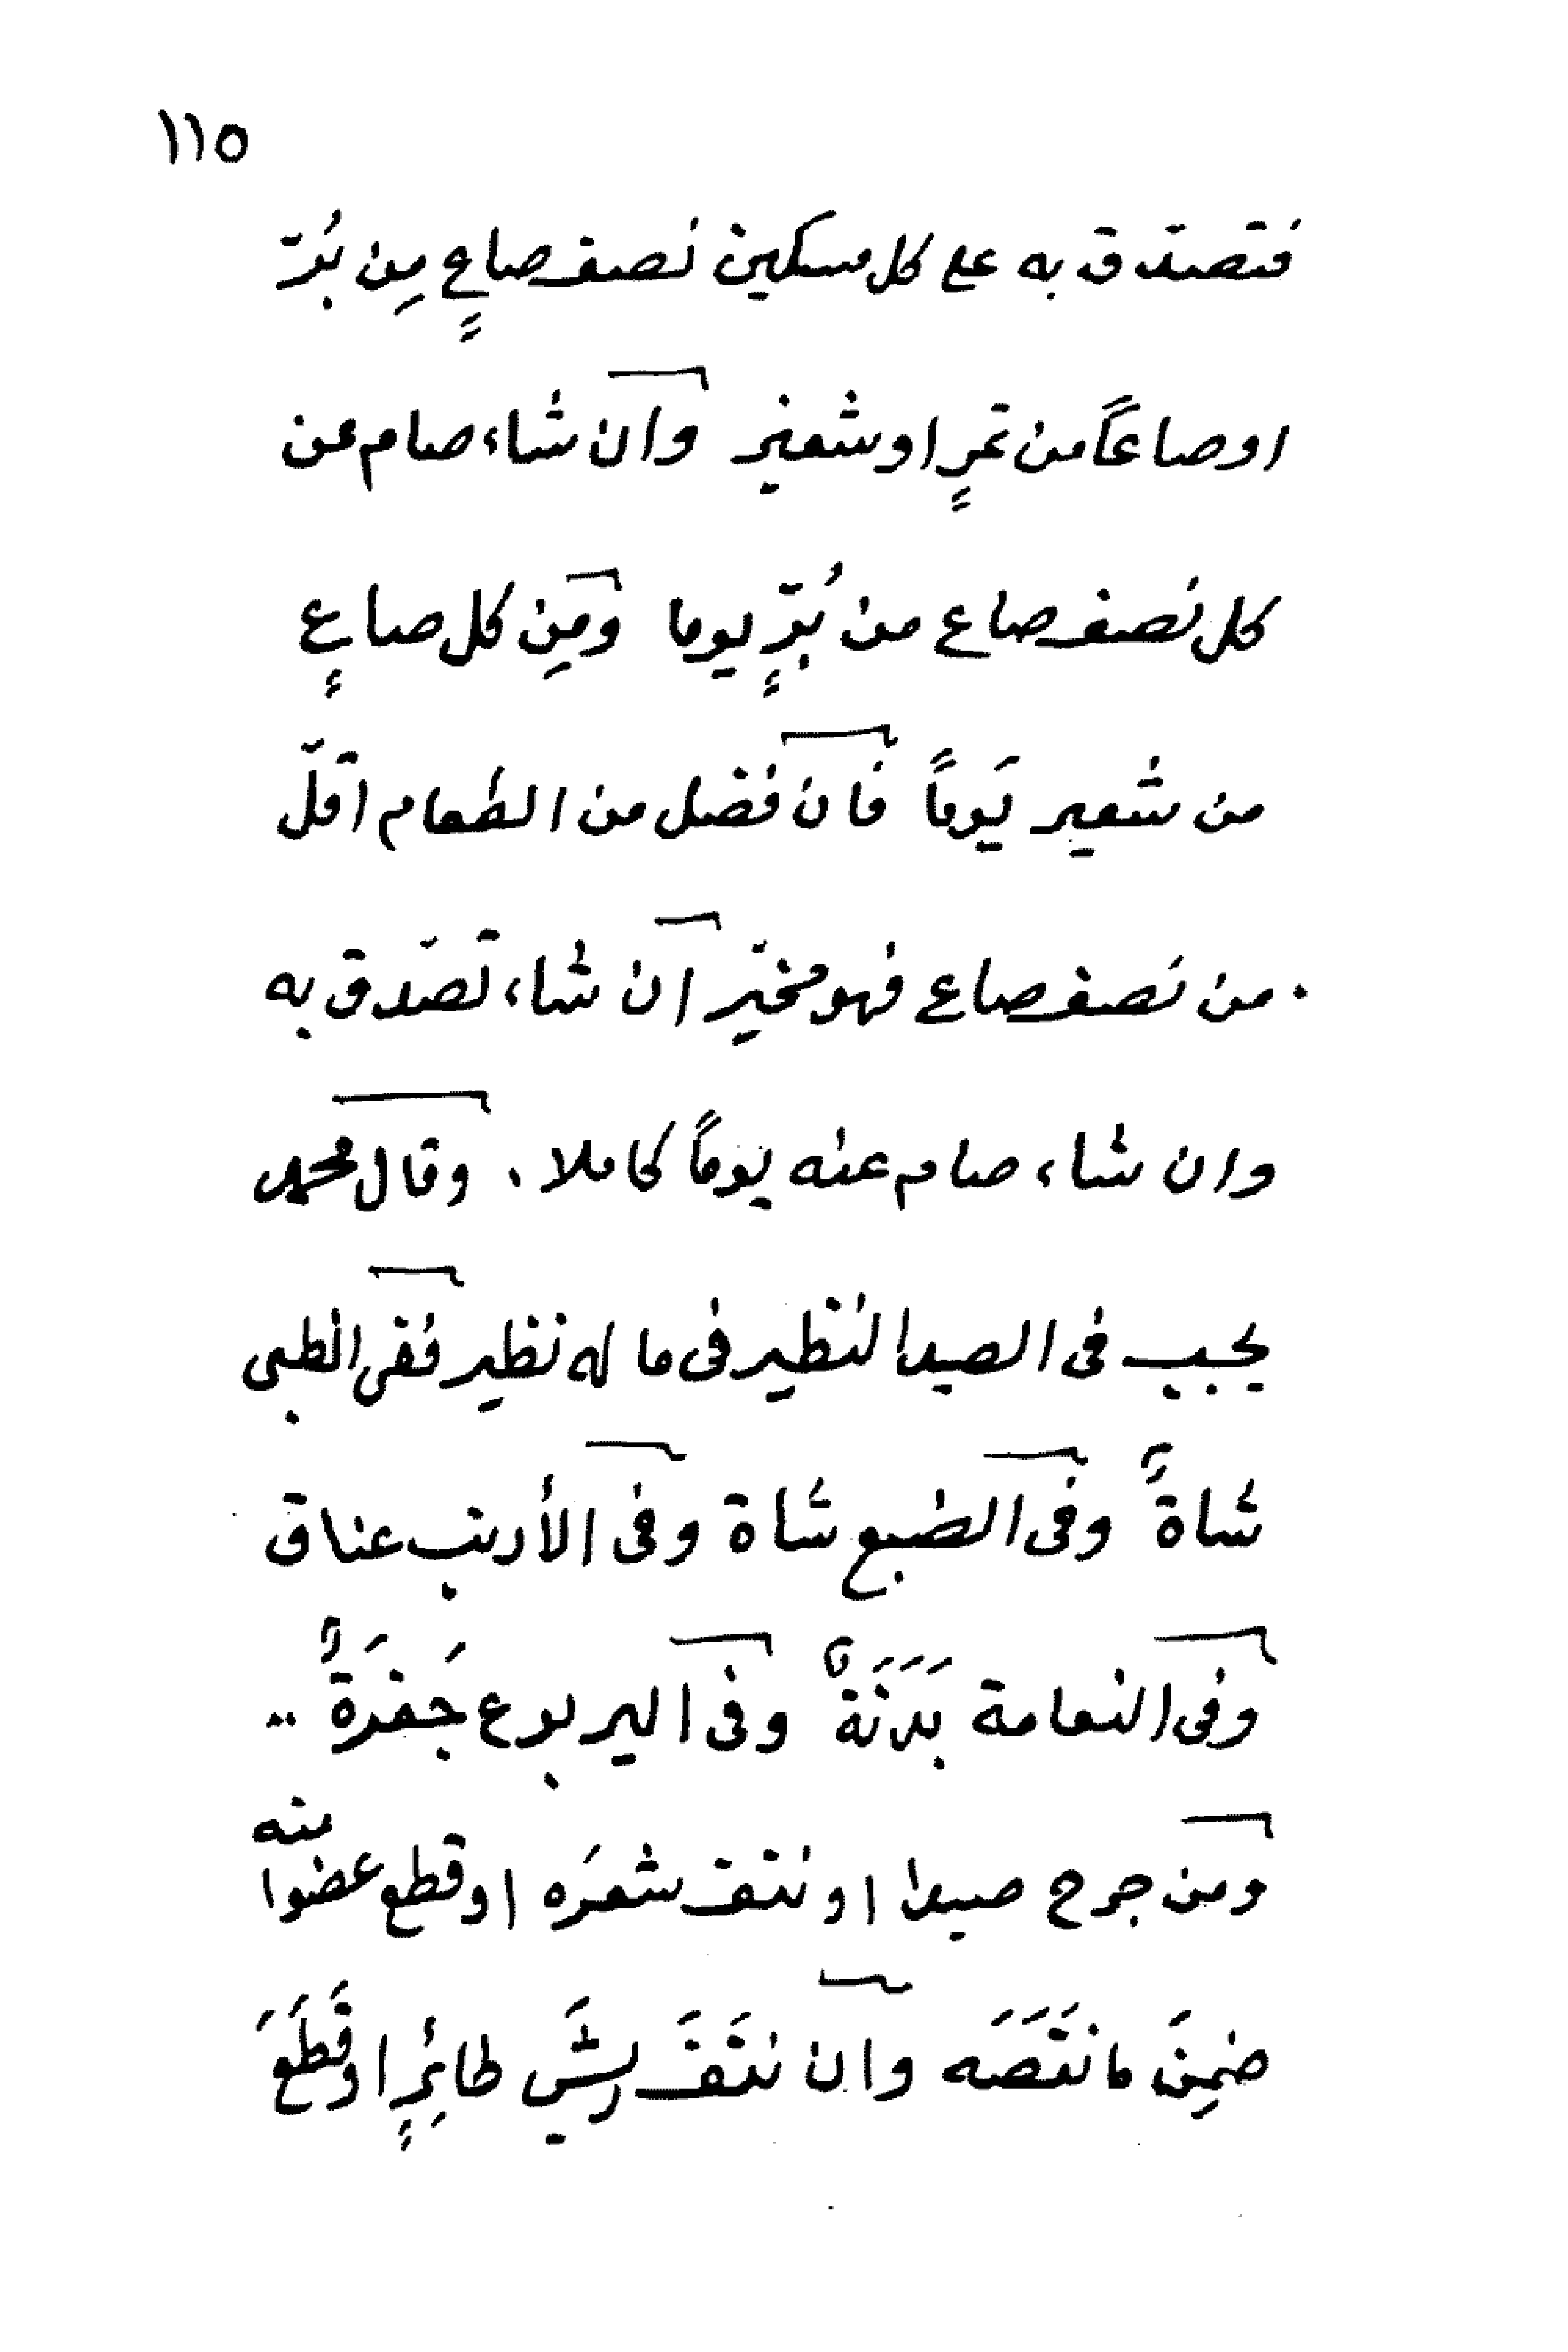 ١١٥
فتصدق به على كل مسكين نصف صاعٍ مِن بُرّ
او صاعًا من تمرٍ او شعير وان شاء صام عن
كل نصف صاع من بُرٍّ يوما ومِن كل صاعٍ
من شعير يَومًا فان فضل من الطعام اقلّ
من نصف صاع فهو مخيّر ان شاء تصّدق به
وان شاء صام عنه يومًا كاملا . وقال محمد
يجب فى الصيد النظير فى ما له نظير ففى الظبى
شاةٌ وفى الضبع شاة وفى الأرنب عناق
وفى النعامة بَدَنَةٌ وفى اليربوع جَفرَةٌ ..
ومن جرح صيدا او نتف شعرَه او قطع عضوا منه
ضمِنَ ما نقَصَه وان نتَفَ ريشَ طائِرٍ او قَطَعَ